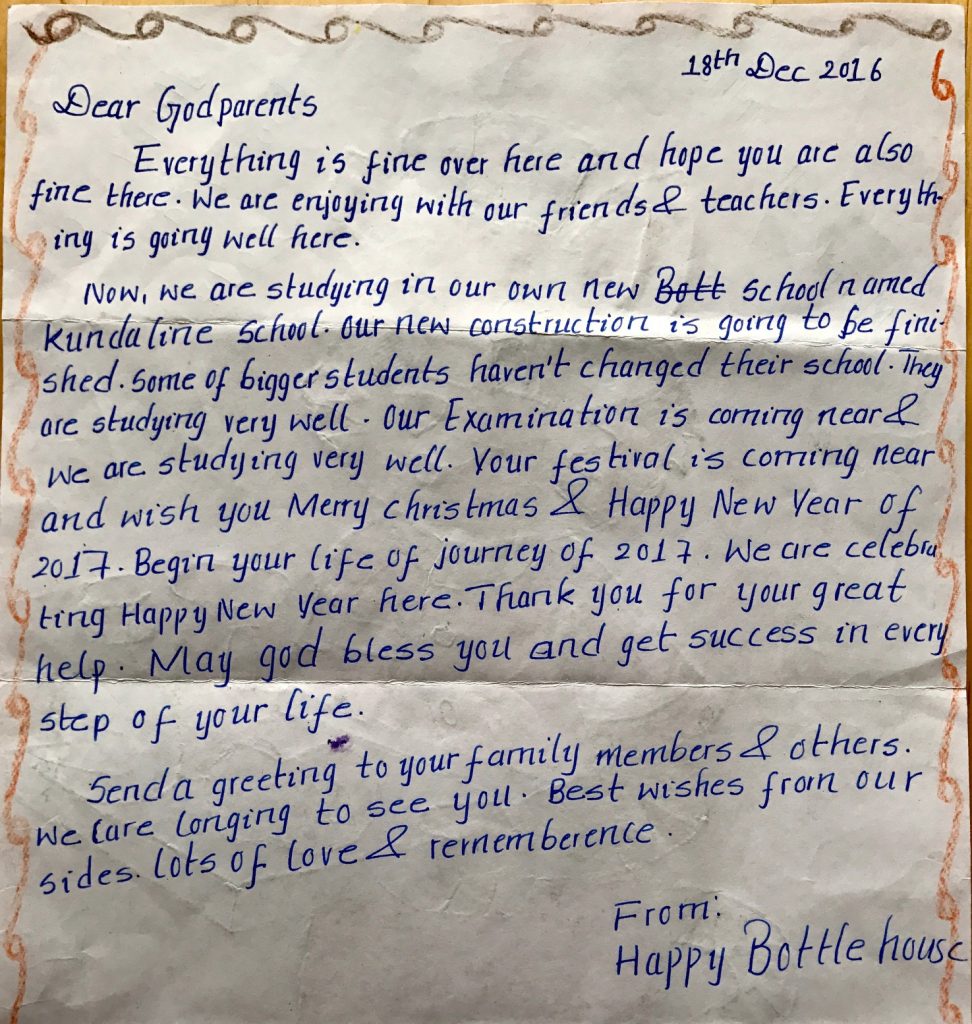 18th Dec 2016
Dear Godparents
Everything is fine over here and hope you are also
fine there. We are enjoying with our friends & teachers. Everyth-
ing is going well here.
Now, we are studying in our own new Bott school named
Kundaline School. Our new construction is going to be fini-
shed. Some of bigger students haven't changed their school. They
are studying very well. Our Examination is coming near &
we are studying very well. Your festival is coming near
and wish you Merry christmas & Happy New Year of
2017. Begin your life of journey of 2017. We are celebra
ting Happy New Year here. Thank you for your great
help. May god bless you and get success in every
step of your life.
Send a greeting to your family members & others.
We are longing to see you. Best wishes from our
sides. Lots of love & rememberence.
From:
Happy Bottle house